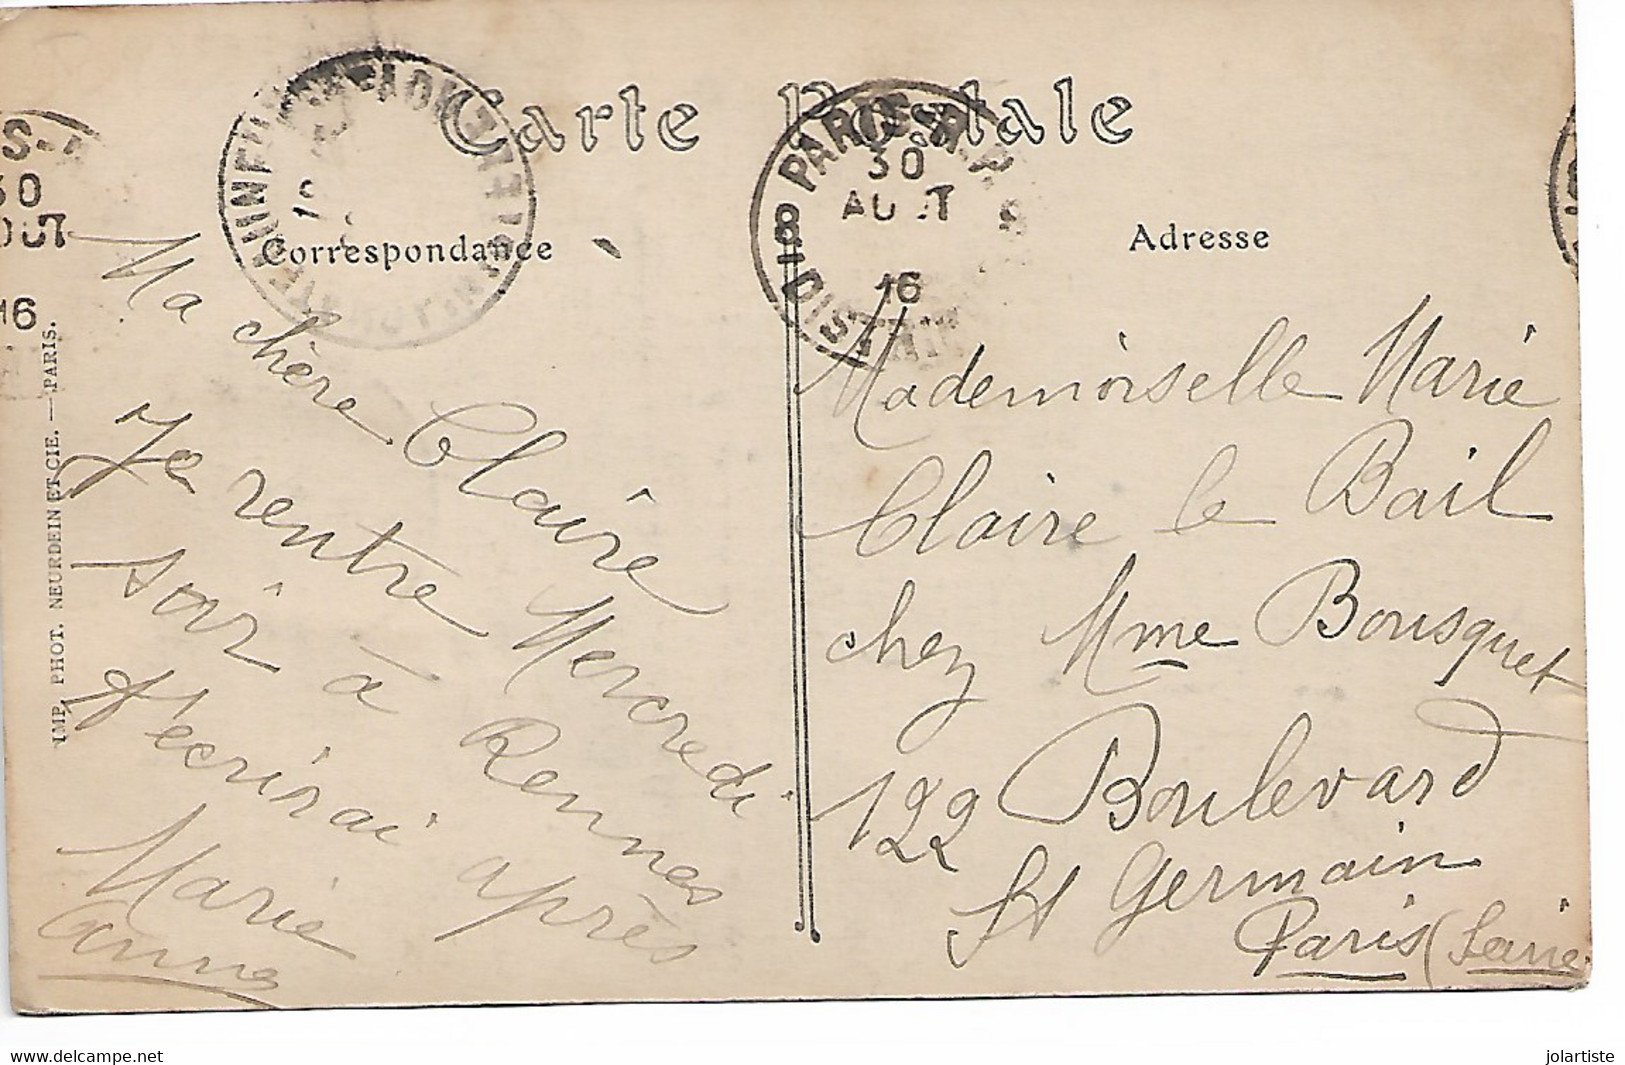 Carte Postale
Correspondance
Adresse
PARIS
DISTRI
30
AOUT
16
S-
30
OUT
16
IMP. PHOT. NEURDEIN ET CIE. — PARIS.
Ma chère Claire
Je rentre Mercredi
soir à Rennes
t'ecrirai après
Marie
Anna
Mademoiselle Marie
Claire le Bail
chez Mme Bousquet
122 Boulevard
St Germain
Paris (Seine
www.delcampe.net
jolartiste